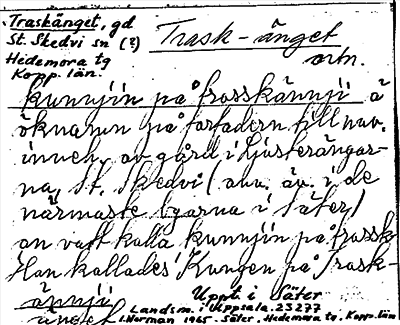 Traskänget, gd
St. Skedvi sn (?)
Hedemora tg
Kopp. län.
Trask-änget
ortn.
kunnjin på frasskännji ä
öknamn på farfadern till nuv.
inneh. av gård i Ljusterängar-
na, St. Skedvi (anv. äv. i de
närmaste byarna i Säter)
an vatt kalla kunnjin på frassk
Han kallades 'Kungen på Trask-
ännji
änget
Uppt. i Säter
Landsm. i Uppsala. 23277
I. Norman 1965. Säter, Hedemora tg, Kopp. län